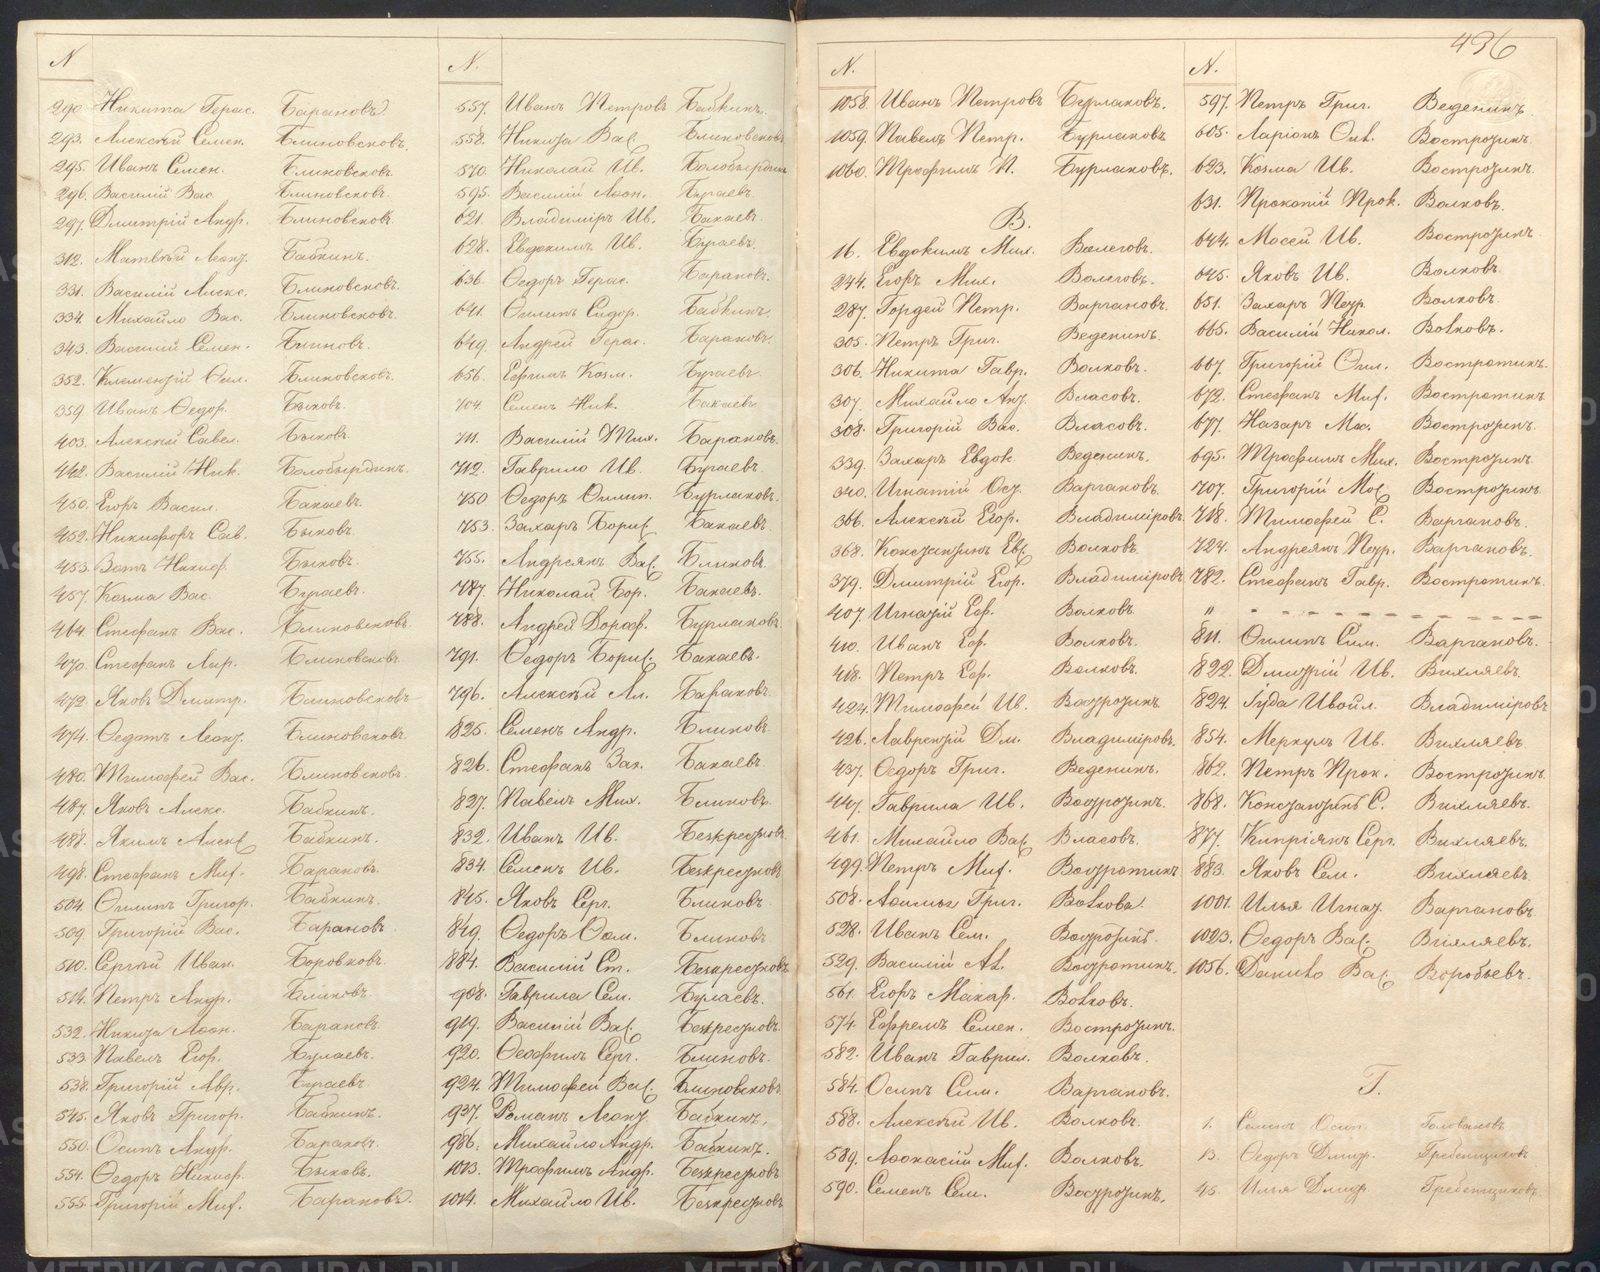 N
290 Никита Герас. Барановъ
293. Алексѣй Семен. Блиновсковъ.
295. Иванъ Семен. Блиновсковъ
296. Василій Вас. Блиновсковъ.
297. Дмитрій Андр. Блиновсковъ
312. Матвѣй Леон. Бабкинъ.
331. Василій Алекс. Блиновсковъ.
334. Михайло Вас. Блиновсковъ.
343. Василій Семен. Блиновъ.
352. Климентій Блиновсковъ.
359 Иванъ Ѳедор. Быковъ.
403. Алексѣй Савел. Быковъ
442. Василій Ник. Белобырдинъ.
450. Егоръ Васил. Бакаевъ.
452. Никифоръ Сав. Быковъ.
453. Никиф. Быковъ.
457. Козма Вас. Бугаевъ.
464. Стефанъ Вас. Блиновсковъ.
470. Стефанъ Блиновсковъ.
472. Яковъ Дмитр. Блиновсковъ
474. Ѳедотъ Леон. Блиновсковъ
480. Тимофей Вас. Блиновсковъ.
487. Яковъ Алекс. Бабкинъ.
488. Якимъ Алекс. Бабкинъ.
498. Стефанъ Миф. Барановъ.
504. Филипъ Григор. Бабкинъ.
509. Григорій Вас. Барановъ
510. Сергѣй Иван. Боровковъ.
514. Петръ Андр. Блиновъ.
532. Никита Афон. Барановъ
533 Павелъ Егор. Булаевъ.
538. Григорій Авр. Бугаевъ
545. Яковъ Григор. Бабкинъ.
550. Осипъ Андр. Барановъ.
554. Ѳедоръ Никиф. Быковъ.
555. Григорій Миф. Барановъ.
N.
557. Иванъ Петровъ Бабкинъ.
558. Никита Вас. Блиновсковъ
570. Николай Ив. Белобырдинъ
595. Василій Афон. Бугаевъ.
621. Владиміръ Ив. Бакаевъ.
628. Евдокимъ Ив. Бугаевъ.
636. Ѳедоръ Герас. Барановъ.
641. Филипъ Сидор. Бабкинъ.
649. Андрей Герас. Барановъ.
656. Ефимъ Козм. Бугаевъ.
704. Семенъ Ник. Бакаевъ
711. Василій Тих. Барановъ.
712. Гаврило Ив. Бугаевъ.
750 Ѳедоръ Филип. Бурлаковъ.
753. Захаръ Борис. Бакаевъ.
755. Андреянъ Вас. Блиновъ.
787. Николай Бор. Бакаевъ.
788. Андрей Дороф. Бурлаковъ
791. Ѳедоръ Борис. Бакаевъ.
796. Алексѣй Ал. Барановъ
825. Семенъ Андр. Блиновъ
826. Стефанъ Зах. Бакаевъ
827. Павелъ Мих. Блиновъ.
832. Иванъ Ив. Безкрестновъ
834. Семенъ Ив. Безкрестновъ
845. Яковъ Серг. Блиновъ
849. Ѳедоръ Ѳом. Блиновъ
884. Василій Ст. Безкрестновъ
908. Гаврила Сем. Булаевъ.
919. Василій Вас. Безкрестновъ.
920. Ѳеофилъ Серг. Блиновъ.
924. Тимофей Вас. Блиновсковъ
937. Романъ Леон. Бабкинъ.
986. Михайло Андр. Бабкинъ.
1013. Трофимъ Андр. Безкрестновъ
1014. Михайло Ив. Безкрестновъ
N.
1058. Иванъ Петровъ Бурлаковъ.
1059. Павелъ Петр. Бурлаковъ
1060. Трофимъ П. Бурлаковъ.
В.
16. Евдокимъ Мих. Волеговъ.
244. Егоръ Мих. Волеговъ.
287. Гордей Петр. Вагановъ.
305. Петръ Григ. Веденинъ.
306. Никита Гавр. Волковъ.
307. Михайло Анд. Власовъ.
308. Григорій Вас. Власовъ.
339. Захаръ Евдок. Веденинъ.
340. Игнатій Ос. Варгановъ.
366. Алексѣй Егор. Владиміровъ
368. Константинъ Евс. Волковъ.
379. Дмитрій Егор. Владиміровъ
407. Игнатій Еф. Волковъ
410. Иванъ Еф. Волковъ.
418. Петръ Еф. Волковъ.
424. Тимофей Ив. Востротинъ
426. Лаврентій Дм. Владиміровъ.
437. Ѳедоръ Григ. Веденинъ.
447. Гаврила Ив. Востротинъ.
461. Михайло Вас. Власовъ.
499. Петръ Миф. Востротинъ
508. Григ. Волкова
528. Иванъ Сем. Востротинъ.
529. Василій Ал. Востротинъ.
561. Егоръ Макар. Волковъ.
574. Ефремъ Семен. Востротинъ.
582. Иванъ Гаврил. Волковъ.
584. Осипъ Сим. Варгановъ.
588. Алексѣй Ив. Волковъ.
589. Афонасій Миф. Волковъ.
590. Семенъ Сем. Востротинъ.
436
N.
597. Петръ Григ. Веденинъ
605. Ларіонъ Востротинъ.
623. Козма Ив. Востротинъ.
631. Прокопій Прок. Волковъ.
644. Мосей Ив. Востротинъ
645. Яковъ Ив. Волковъ.
651. Захаръ Петр. Волковъ.
665. Василій Никол. Волковъ.
667. Григорій Востротинъ.
672. Стефанъ Миф. Востротинъ
677. Назаръ Востротинъ.
695. Трофимъ Мих. Востротинъ
707. Григорій Востротинъ
718. Тимофей С. Варгановъ.
724. Андреянъ Петр. Варгановъ.
782. Стефанъ Гавр. Востротинъ.
" - - - - - - - - -
811. Филипъ Сим. Варгановъ.
822. Дмитрій Ив. Вихляевъ.
824. Іуда Владиміровъ
854. Меркулъ Ив. Вихляевъ.
862. Петръ Прок. Востротинъ.
868. Константинъ С. Вихляевъ.
877. Кипріянъ Серг. Вихляевъ.
883. Яковъ Сем. Вихляевъ
1001. Илья Игнат. Варгановъ
1023. Ѳедоръ Вас. Вихляевъ.
1056. Данило Вас. Воробьевъ.
Г.
1. Семенъ Осип. Головановъ
13. Ѳедоръ Дмитр. Гребенщиковъ
45. Илья Дмитр. Гребенщиковъ.
METRIKI.GASO-URAL.RU